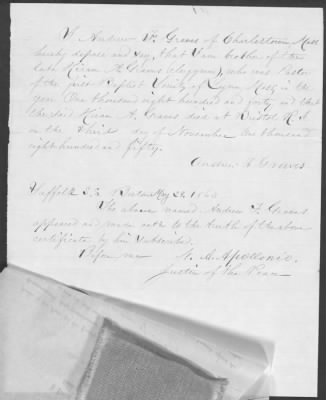 I Andrew F. Graves of Charlestown Mass
hereby depose and say, that I am brother of the
late Hiram A. Graves (clergyman), who was Pastor
of the first Baptist Society of Lynn, Mass, in the
year One thousand eight hundred and forty and that
the said Hiram A. Graves died at Bristol R.I.
on the third day of November One thousand
eight hundred and fifty.
Andrew F. Graves
Suffolk S.S. Boston May 28, 
The above named Andrew F. Graves
appeared and made oath to the truth of the above
certificate by him subscribed.
Before me
N. A. Apollonio.
Justice of the Peace